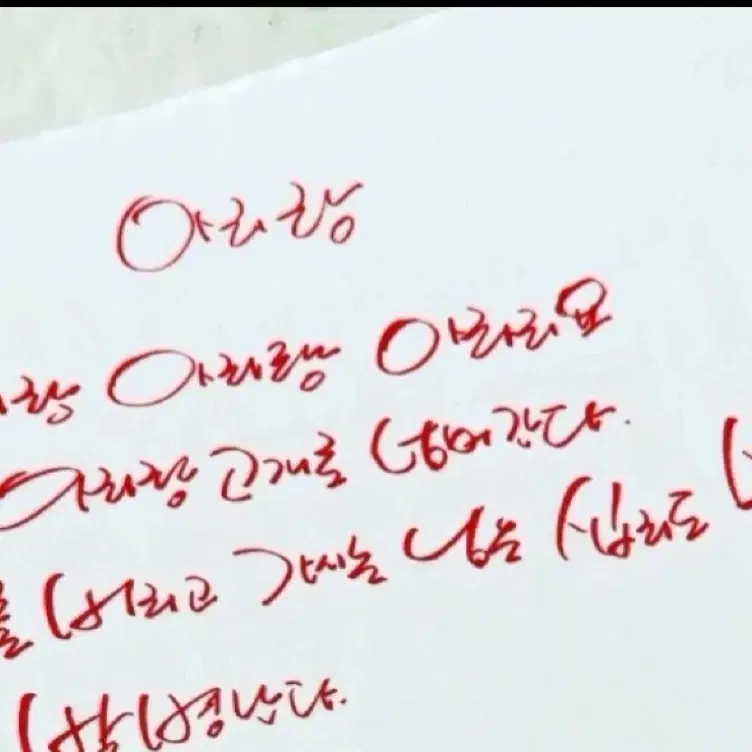 아리랑
리랑 아리랑 아라리요
아리랑 고개로 넘어간다.
를 버리고 가시는 님은 십리도
발병난다.